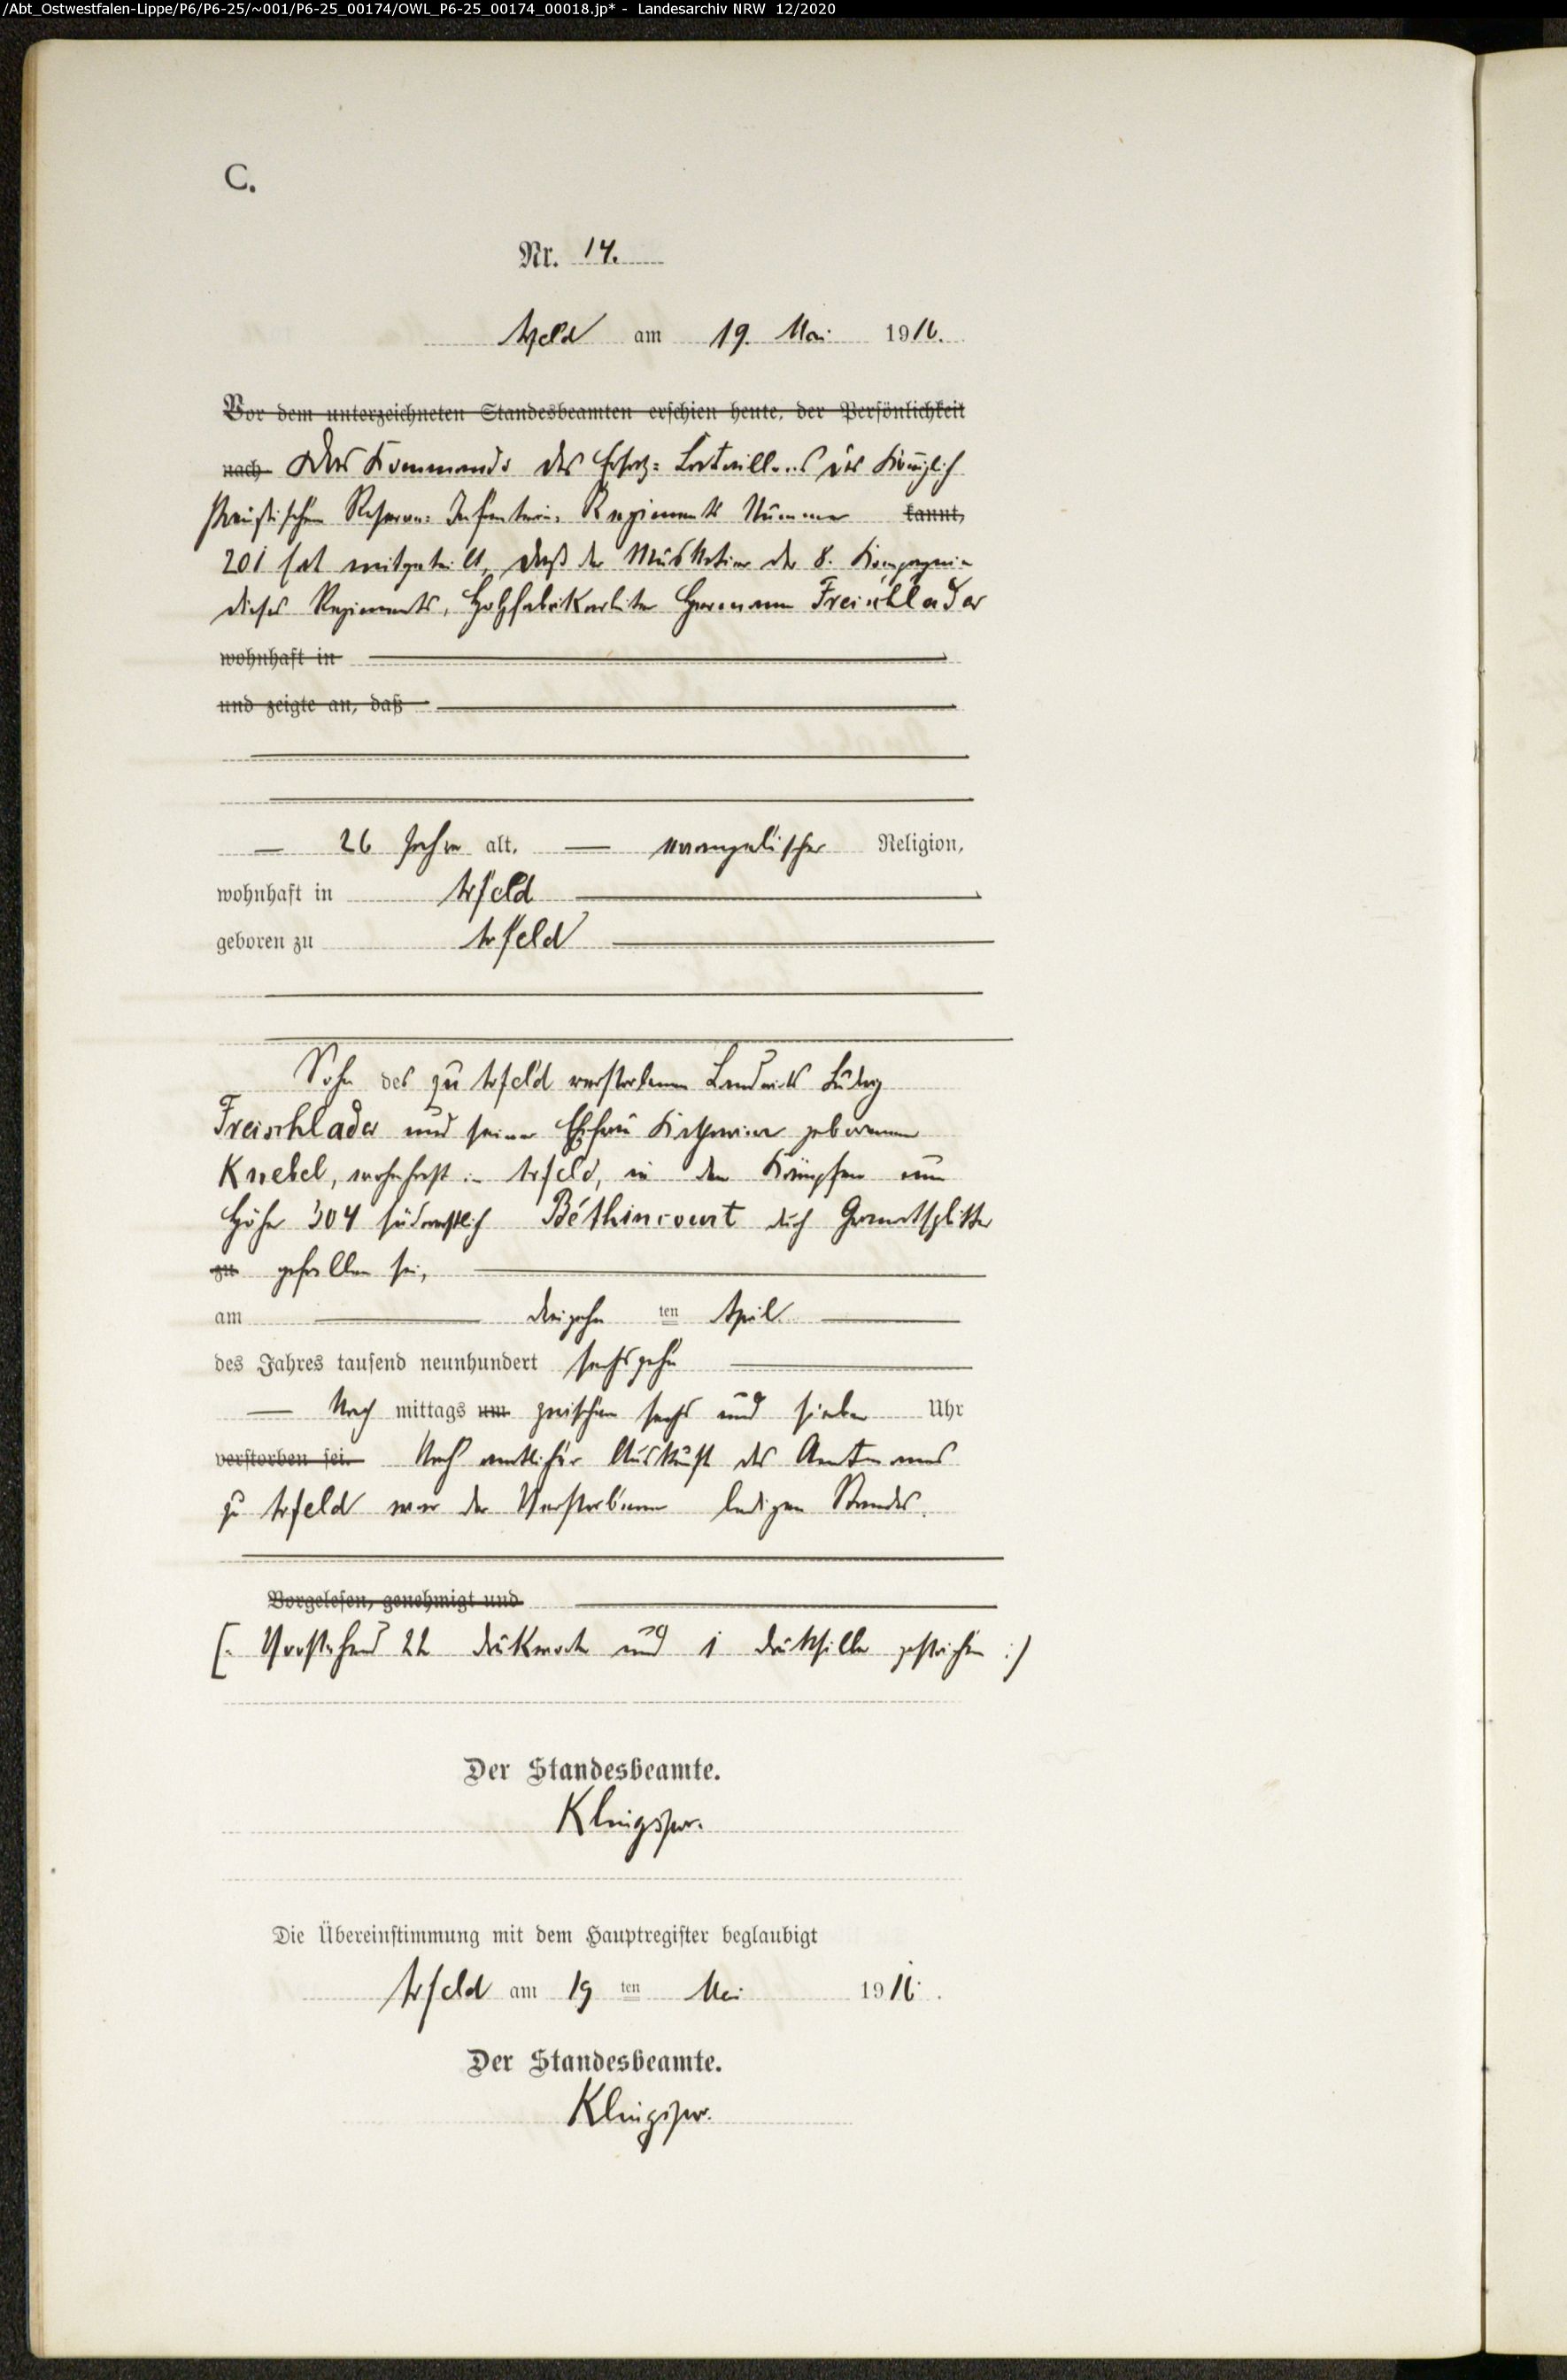 /Abt_Ostwestfalen-Lippe/P6/P6-25/~001/P6-25_00174/OWL_P6-25_00174_00018.jp* - Landesarchiv NRW 12/2020
C.
Nr. 14.
Arfeld am 19. Mai 1916.
Vor dem unterzeichneten Standesbeamten erschien heute, der Persönlichkeit
nach Das Kommando des Ersatz-Bataillons des Königlich
Preußischen Reserve-Infanterie-Regiments Nummer kannt,
201 hat mitgeteilt, daß der Musketier der 8. Kompagnie
dieses Regiments, Holzfabrikarbeiter Hermann Freischlader
wohnhaft in
und zeigte an, daß
26 Jahre alt, evangelischer Religion,
wohnhaft in Arfeld
geboren zu Arfeld
Sohn des zu Arfeld verstorbenen Landwirts Ludwig
Freischlader und seiner Ehefrau Katharine geborenen
Knebel, wohnhaft in Arfeld, in den Kämpfen um
Höhe 304 südwestlich Béthincourt durch Granatsplitter
zu gefallen sei,
am dreizehn ten April
des Jahres tausend neunhundert sechszehn
Nach mittags um zwischen sechs und sieben Uhr
verstorben sei. Nach amtlicher Auskunft des Amtmanns
zu Arfeld war der Verstorbene ledigen Standes.
Vorgelesen, genehmigt und
(: Vorstehend 22 Druckworte und 1 Drucksilbe gestrichen :)
Der Standesbeamte.
Klingspor.
Die Übereinstimmung mit dem Hauptregister beglaubigt
Arfeld am 19 ten Mai 1916.
Der Standesbeamte.
Klingspor.